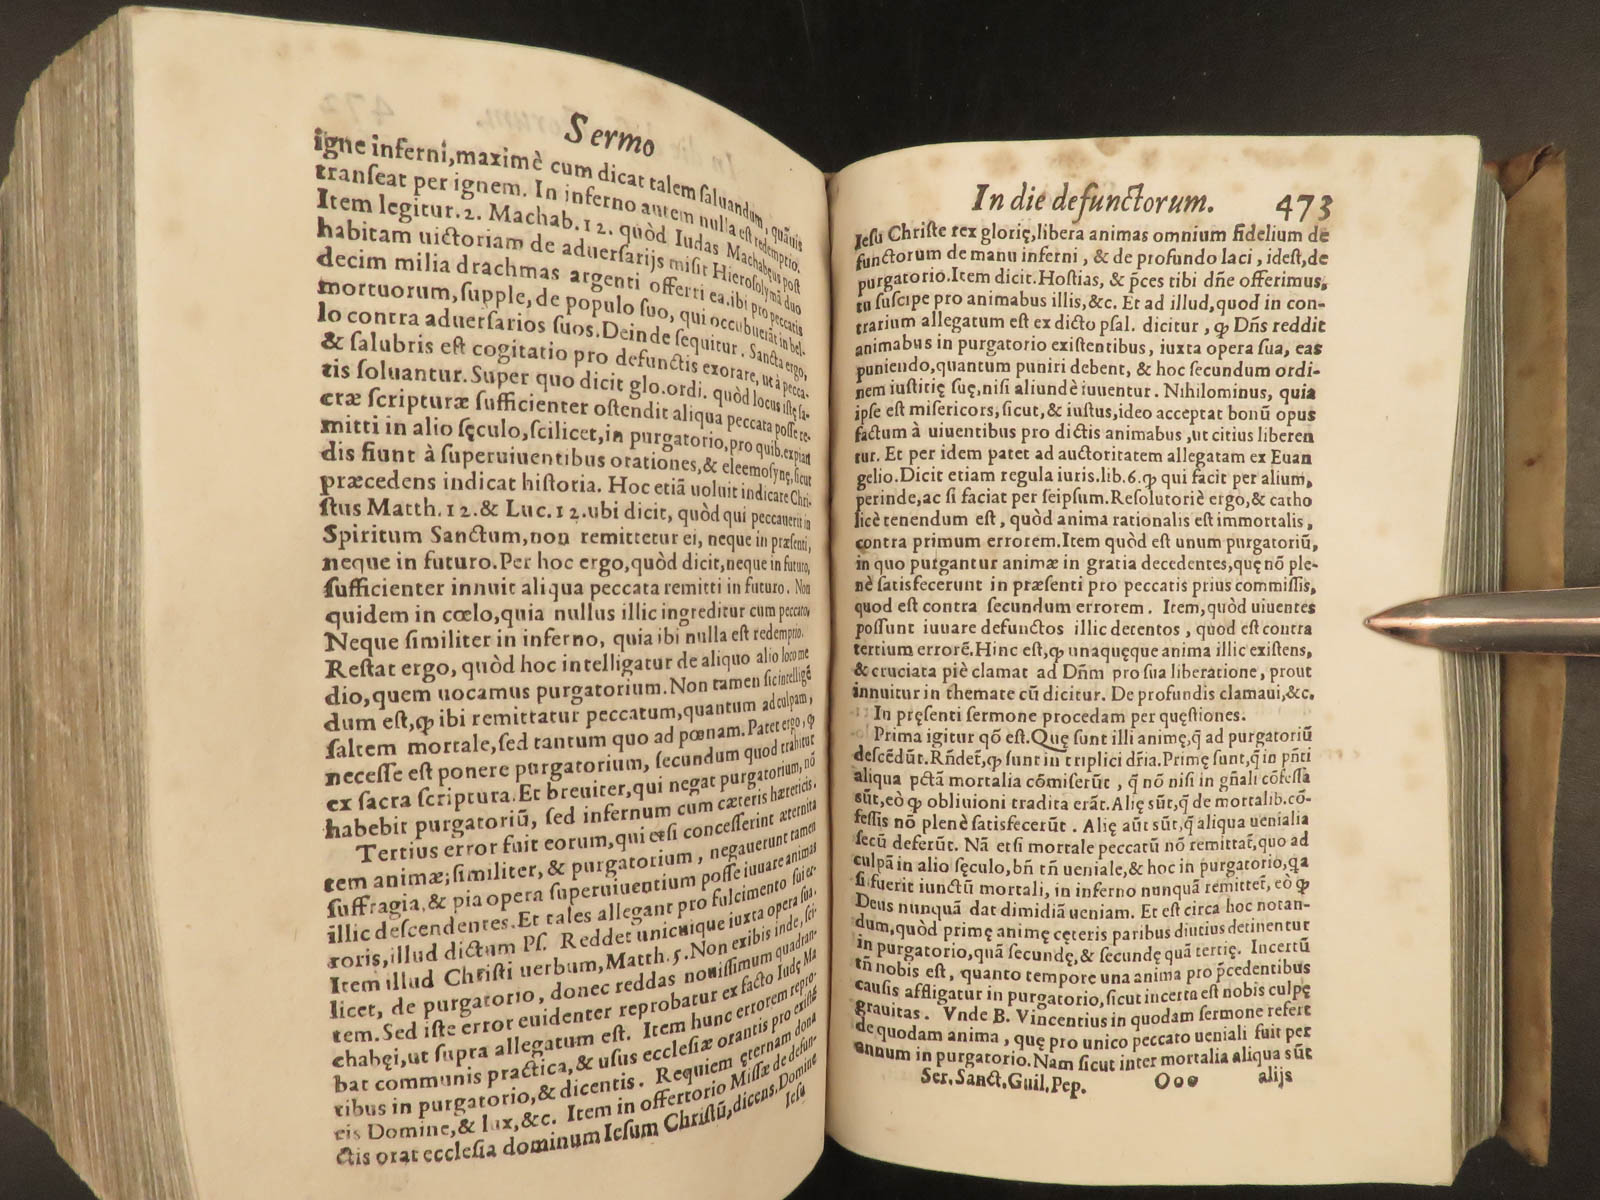 Sermo
igne inferni, maximè cum dicat talem ſaluandum, quãuis
tranſeat per ignem. In inferno autem nulla eſt redemptio.
Item legitur. 2. Machab. 12. quòd Iudas Machabęus poſt
habitam uictoriam de aduerſarijs miſit Hieroſolymã duo
decim milia drachmas argenti offerri ea. ibi pro peccatis
mortuorum, ſupple, de populo ſuo, qui occubuerãt in bel-
lo contra aduerſarios ſuos. Deinde ſequitur. Sancta ergo,
& ſalubris eſt cogitatio pro defunctis exorare, ut à pecca-
tis ſoluantur. Super quo dicit glo. ordi. quòd locus iſtę ſa-
cræ ſcripturæ ſufficienter oſtendit aliqua peccata poſſe re-
mitti in alio ſęculo, ſcilicet, in purgatorio, pro quib. expian
dis fiunt à ſuperuiuentibus orationes, & eleemoſynę, ſicut
præcedens indicat hiſtoria. Hoc etiã uoluit indicare Chri-
ſtus Matth. 12. & Luc. 12. ubi dicit, quòd qui peccauerit in
Spiritum Sanctum, non remittetur ei, neque in præſenti,
neque in futuro. Per hoc ergo, quòd dicit, neque in futuro,
ſufficienter innuit aliqua peccata remitti in futuro. Non
quidem in cœlo, quia nullus illic ingreditur cum peccato.
Neque ſimiliter in inferno, quia ibi nulla eſt redemptio.
Reſtat ergo, quòd hoc intelligatur de aliquo alio loco me
dio, quem uocamus purgatorium. Non tamen ſic intelligẽ
dum eſt, ꝙ ibi remittatur peccatum, quantum ad culpam,
ſaltem mortale, ſed tantum quo ad pœnam. Patet ergo, ꝙ
neceſſe eſt ponere purgatorium, ſecundum quod trahitur
ex ſacra ſcriptura. Et breuiter, qui negat purgatorium, nõ
habebit purgatoriũ, ſed infernum cum cæteris hæreticis.
Tertius error fuit eorum, qui etſi conceſſerint æternita
tem animæ; ſimiliter, & purgatorium, negauerunt tamen
ſuffragia, & pia opera ſuperuiuentium poſſe iuuare animas
illic deſcendentes. Et tales allegant pro fulcimento ſui er-
roris, illud dictum Pſ. Reddet unicuique iuxta opera ſua.
Item illud Chriſti uerbum, Matth. 5. Non exibis inde, ſci-
licet, de purgatorio, donec reddas nouiſſimum quadran-
tem. Sed iſte error euidenter reprobatur ex facto Iudę Ma
chabęi, ut ſupra allegatum eſt. Item hunc errorem repro-
bat communis practica, & uſus eccleſiæ orantis pro exiſtẽ
tibus in purgatorio, & dicentis. Requiem ęternam dona
eis Domine, & lux, &c. Item in offertorio Miſſæ de defun-
ctis orat eccleſia dominum Ieſum Chriſtũ, dicens. Domine
Ieſu
In die defunctorum. 473
Ieſu Chriſte rex glorię, libera animas omnium fidelium de
functorum de manu inferni, & de profundo laci, ideſt, de
purgatorio. Item dicit. Hoſtias, & p̃ces tibi dñe offerimus,
tu ſuſcipe pro animabus illis, &c. Et ad illud, quod in con-
trarium allegatum eſt ex dicto pſal. dicitur, ꝙ Dñs reddit
animabus in purgatorio exiſtentibus, iuxta opera ſua, eas
puniendo, quantum puniri debent, & hoc ſecundum ordi-
nem iuſtitię ſuę, niſi aliundè iuuentur. Nihilominus, quia
ipſe eſt miſericors, ſicut, & iuſtus, ideo acceptat bonũ opus
factum à uiuentibus pro dictis animabus, ut citius liberen
tur. Et per idem patet ad auctoritatem allegatam ex Euan
gelio. Dicit etiam regula iuris. lib. 6. ꝙ qui facit per alium,
perinde, ac ſi faciat per ſeipſum. Reſolutoriè ergo, & catho
licè tenendum eſt, quòd anima rationalis eſt immortalis,
contra primum errorem. Item quòd eſt unum purgatoriũ,
in quo purgantur animæ in gratia decedentes, quę nõ ple-
nè ſatisfecerunt in præſenti pro peccatis prius commiſſis,
quod eſt contra ſecundum errorem. Item, quòd uiuentes
poſſunt iuuare defunctos illic detentos, quod eſt contra
tertium errorẽ. Hinc eſt, ꝙ unaquęque anima illic exiſtens,
& cruciata piè clamat ad Dñm pro ſua liberatione, prout
innuitur in themate cũ dicitur. De profundis clamaui, &c.
In pręſenti ſermone procedam per quęſtiones.
Prima igitur qõ eſt. Quę ſunt illi animę, q̃ ad purgatoriũ
deſcẽdũt. Rñdet̃, ꝙ ſunt in triplici dr̃ia. Primę ſunt, q̃ in pñti
aliqua pctã mortalia cõmiſerũt, q̃ nõ niſi in gñali cõfeſſa
ſũt, eò ꝙ obliuioni tradita erãt. Alię ſũt, q̃ de mortalib. cõ-
feſſis nõ plenè ſatisfecerũt. Alię aũt ſũt, q̃ aliqua uenialia
ſecũ deferũt. Nã etſi mortale peccatũ nõ remittat̃, quo ad
culpã in alio ſęculo, bñ tñ ueniale, & hoc in purgatorio, qa
ſi fuerit iunctũ mortali, in inferno nunquã remittet̃, eò ꝙ
Deus nunquã dat dimidiã ueniam. Et eſt circa hoc notan-
dum, quòd primę animę cęteris paribus diutius detinentur
in purgatorio, quã ſecundę, & ſecundę quã tertię. Incertũ
tñ nobis eſt, quanto tempore una anima pro p̃cedentibus
cauſis affligatur in purgatorio, ſicut incerta eſt nobis culpę
grauitas. Vnde B. Vincentius in quodam ſermone refert
de quodam anima, quę pro unico peccato ueniali fuit per
annum in purgatorio. Nam ſicut inter mortalia aliqua ſũt
Ser. Sanct. Guil. Pep. Ooo alijs